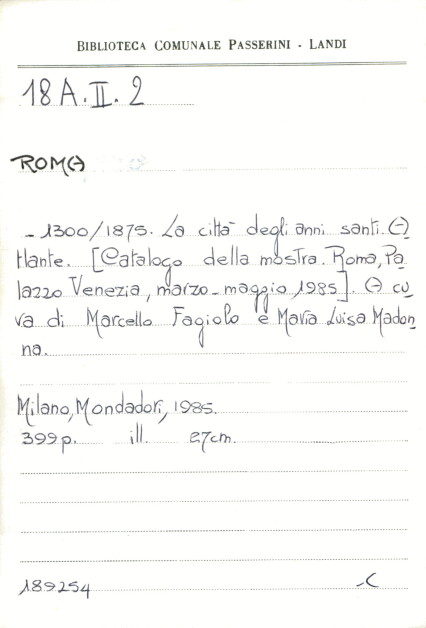 BIBLIOTECA COMUNALE PASSERINI - LANDI
18 A. II. 2
ROMA
- 1300/1875. La città degli anni santi. A
tlante. [Catalogo della mostra. Roma, Pa
lazzo Venezia, marzo-maggio, 1985]. A cu
ra di Marcello Fagiolo e Maria Luisa Madon
na.
Milano, Mondadori, 1985.
399 p. ill. 27cm.
189254